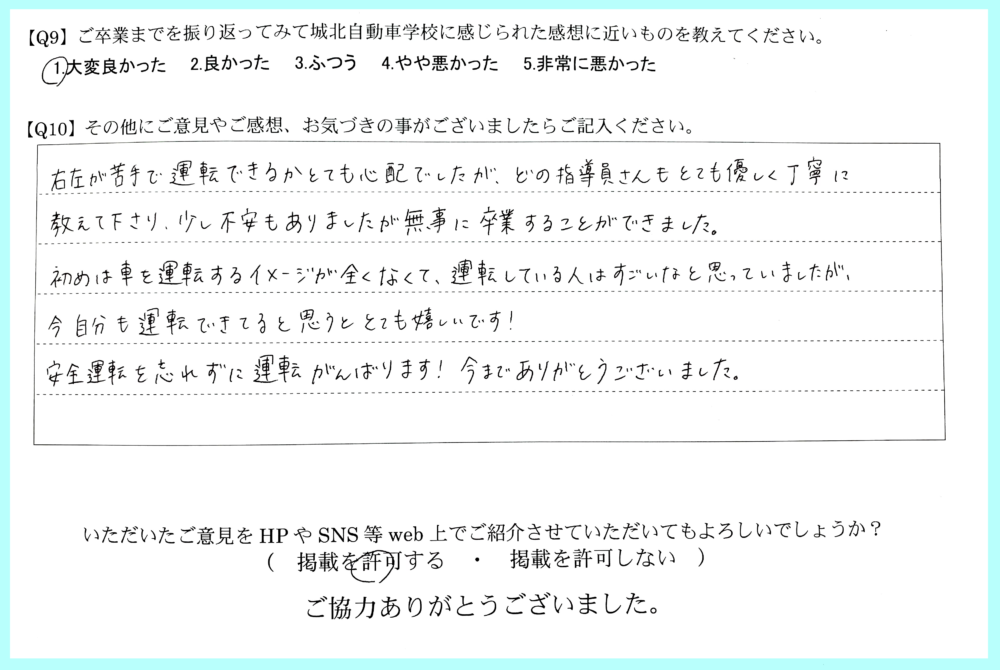 【Q9】ご卒業までを振り返ってみて城北自動車学校に感じられた感想に近いものを教えてください。
1.大変良かった 2.良かった 3.ふつう 4.やや悪かった 5.非常に悪かった
【Q10】その他にご意見やご感想、お気づきの事がございましたらご記入ください。
右左が苦手で運転できるかとても心配でしたが、どの指導員さんもとても優しく丁寧に
教えて下さり、少し不安もありましたが無事に卒業することができました。
初めは車を運転するイメージが全くなくて、運転している人はすごいなと思っていましたが、
今自分も運転できてると思うととても嬉しいです!
安全運転を忘れずに運転がんばります! 今までありがとうございました。
いただいたご意見をHPやSNS等web上でご紹介させていただいてもよろしいでしょうか?
( 掲載を許可する ・ 掲載を許可しない )
ご協力ありがとうございました。